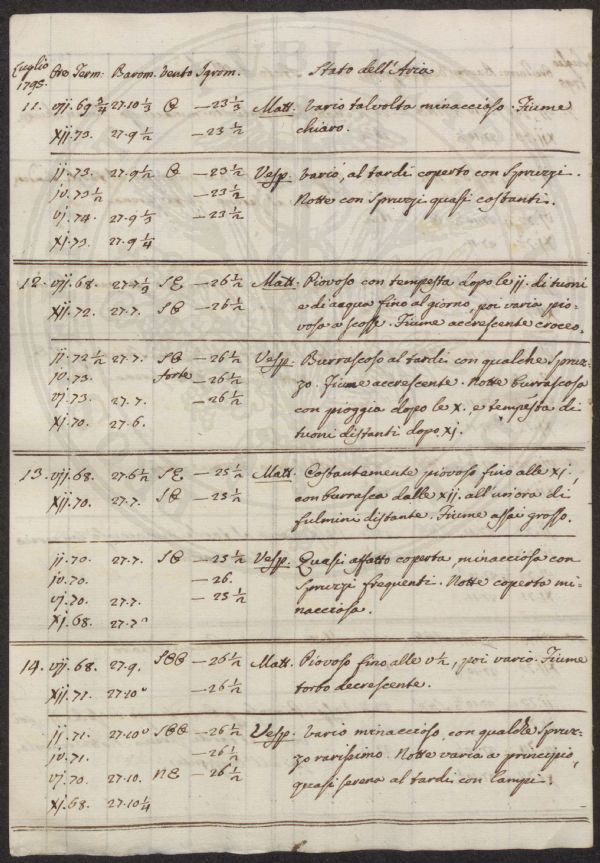 Luglio 1795. Ore Term: Barom. Vento Igrom. Stato dell'Aria
11. vij. 69 3/4 27.10 1/3 E — 23 1/3 Matt. Vario talvolta minaccioso. Fiume
xij. 73. 27.9 1/2 — 23 1/2 chiaro.
ij. 73. 27.9 1/2 E — 23 1/2 Vesp. Vario, al tardi coperto con Spruzzi.
iv. 73 1/2 — 23 1/2 Notte con Spruzzi quasi costanti.
vj. 74. 27.9 1/3 — 23 1/2
xj. 73. 27.9 1/4
12. vij. 68. 27.7 1/3 SE — 26 1/2 Matt. Piovoso con tempesta dopo le ij. di tuoni
xij. 72. 27.7. SE — 26 1/2 e di acqua fino al giorno, poi varia pio-
vosa a scosse. Fiume accrescente croceo.
ij. 72 1/2 27.7. SE — 26 1/2 Vesp. Burrascoso al tardi con qualche Spruz-
iv. 73. forte — 26 1/2 zo. Fiume accrescente. Notte burrascosa
vj. 73. 27.7. — 26 1/2 con pioggia dopo le x. e tempesta di
xj. 70. 27.6. tuoni distanti dopo xj.
13. vij. 68. 27.6 1/2 SE — 25 1/2 Matt. Costantemente piovoso fino alle xj.
xij. 70. 27.7. SE — 25 1/2 con burrasca dalle xij. all'un'ora di
fulmini distante. Fiume assai grosso.
ij. 70. 27.7. SE — 25 1/2 Vesp. Quasi affatto coperta, minacciosa con
iv. 70. — 26. Spruzzi frequenti. Notte coperta mi-
vj. 70. 27.7. — 25 1/2 nacciosa.
xj. 68. 27.7
14. vij. 68. 27.9. SEE — 26 1/2 Matt. Piovoso fino alle v 1/2, poi vario. Fiume
xij. 71. 27.10 — 26 1/2 torbo decrescente.
ij. 71. 27.10 SEE — 26 1/2 Vesp. Vario minaccioso, con qualche Spruz-
iv. 71. — 26 1/2 zo rarissimo. Notte varia a principio,
vj. 70. 27.10. NE — 26 1/2 quasi serena al tardi con lampi.
xj. 68. 27.10 1/4